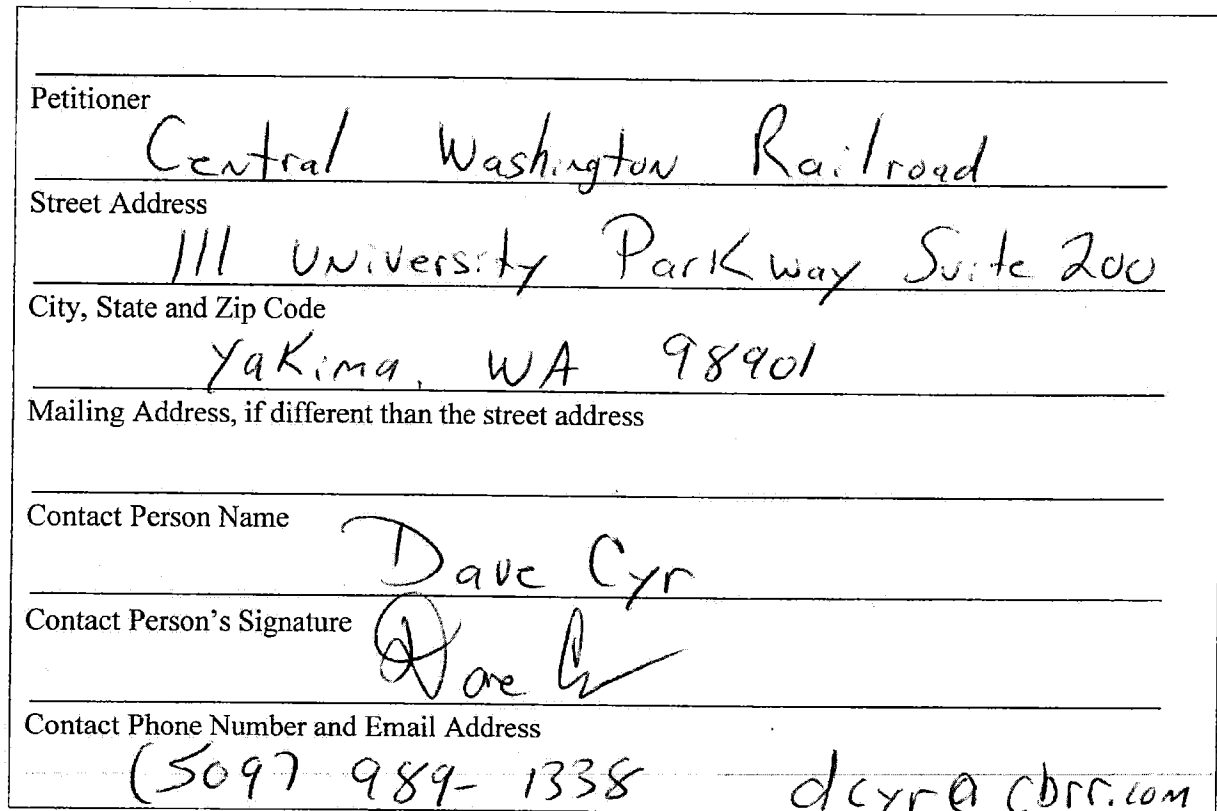 Petitioner
Central Washington Railroad
Street Address
111 University Parkway Suite 200
City, State and Zip Code
Yakima, WA 98901
Mailing Address, if different than the street address
Contact Person Name
Dave Cyr
Contact Person's Signature
Dave C
Contact Phone Number and Email Address
(509) 989-1338 dcyr@cbrr.com